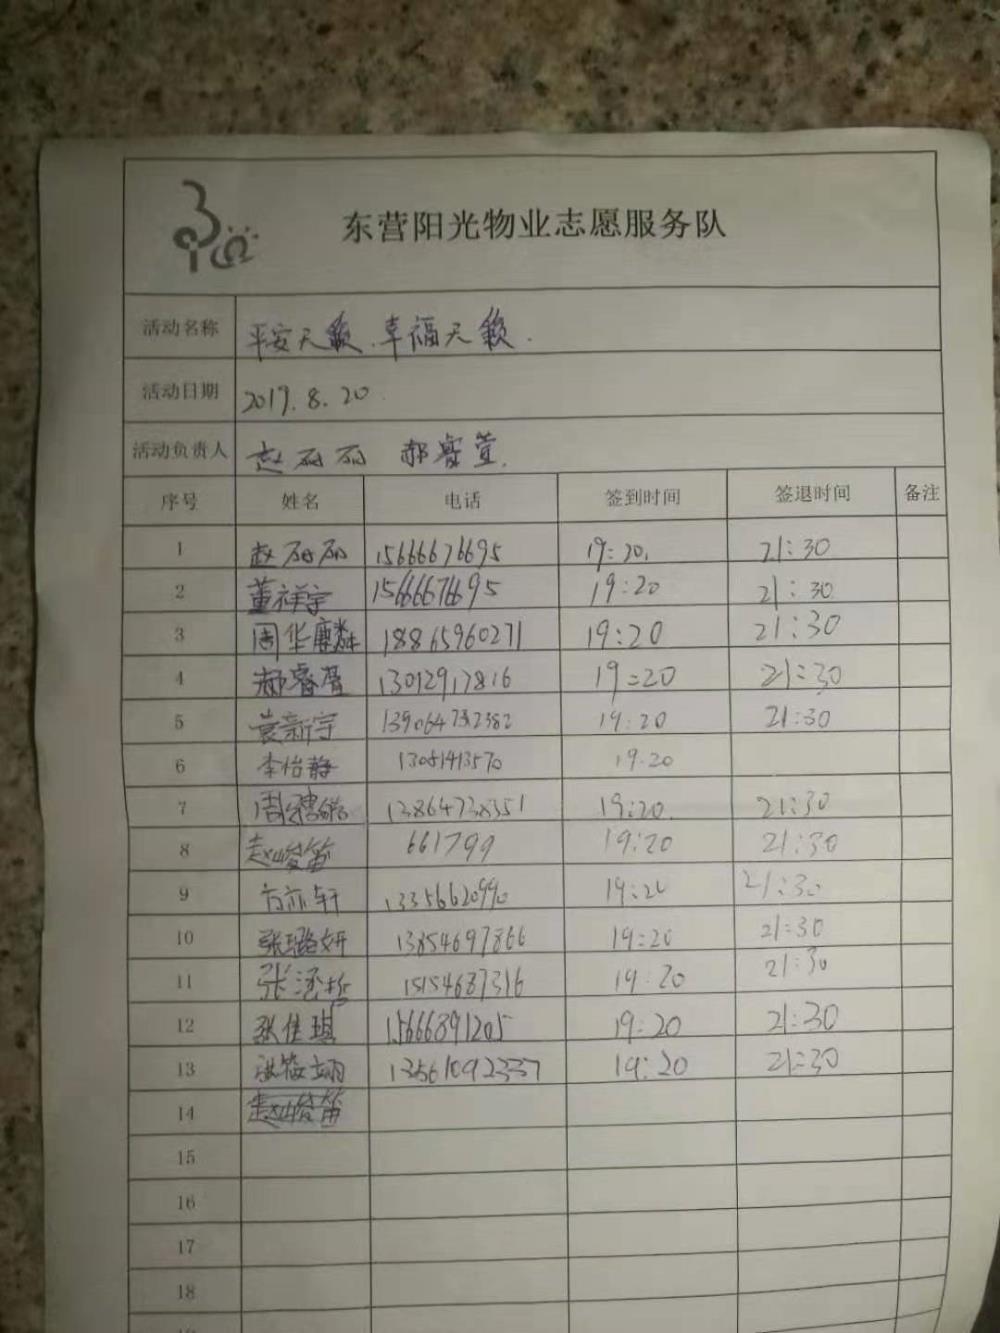 东营阳光物业志愿服务队
活动名称 平安天籁.幸福天籁.
活动日期 2019.8.20
活动负责人 赵丽丽 郝睿萱.
序号 姓名 电话 签到时间 签退时间 备注
1 赵丽丽 15666676695 19:20. 21:30
2 董祥宇 15666676695 19:20 21:30
3 周华麟 18865960271 19:20 21:30
4 13012917816 19:20 21:30
5 袁新宇 19:20 21:30
6 李怡静 13081413570 19.20
7 13864738351 19:20. 21:30
8 赵峻笛 661799 19:20 21:30
9 方亦轩 13356620990 19:20 21:30
10 张璐妍 13854697866 19:20 21:30
11 15154687316 19:20 21:30
12 张佳琪 15666891205 19:20 21:30
13 13561092337 19:20 21:30
14 赵峻笛
15
16
17
18